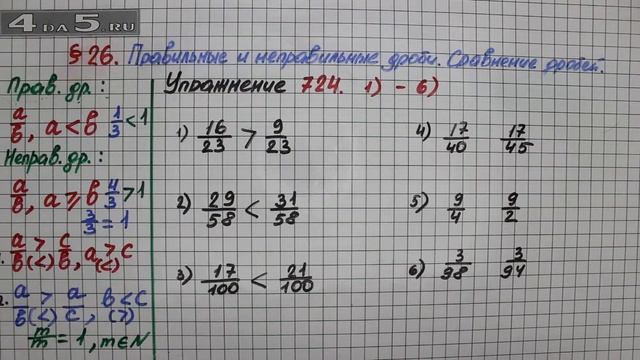 4 da 5.RU
§ 26. Правильные и неправильные дроби. Сравнение дробей.
Прав. др.:
a/b, a < b 1/3 < 1
Неправ. др.:
a/b, a ⩾ b 4/3 > 1
3/3 = 1
a/b >(<) c/b, a >(<) c
a/b >(<) a/c, b < c (>)
m/m = 1, m∈N
Упражнение 724. 1) - 6)
1) 16/23 > 9/23
2) 29/58 < 31/58
3) 17/100 < 21/100
4) 17/40 17/45
5) 9/4 9/2
6) 3/98 3/94